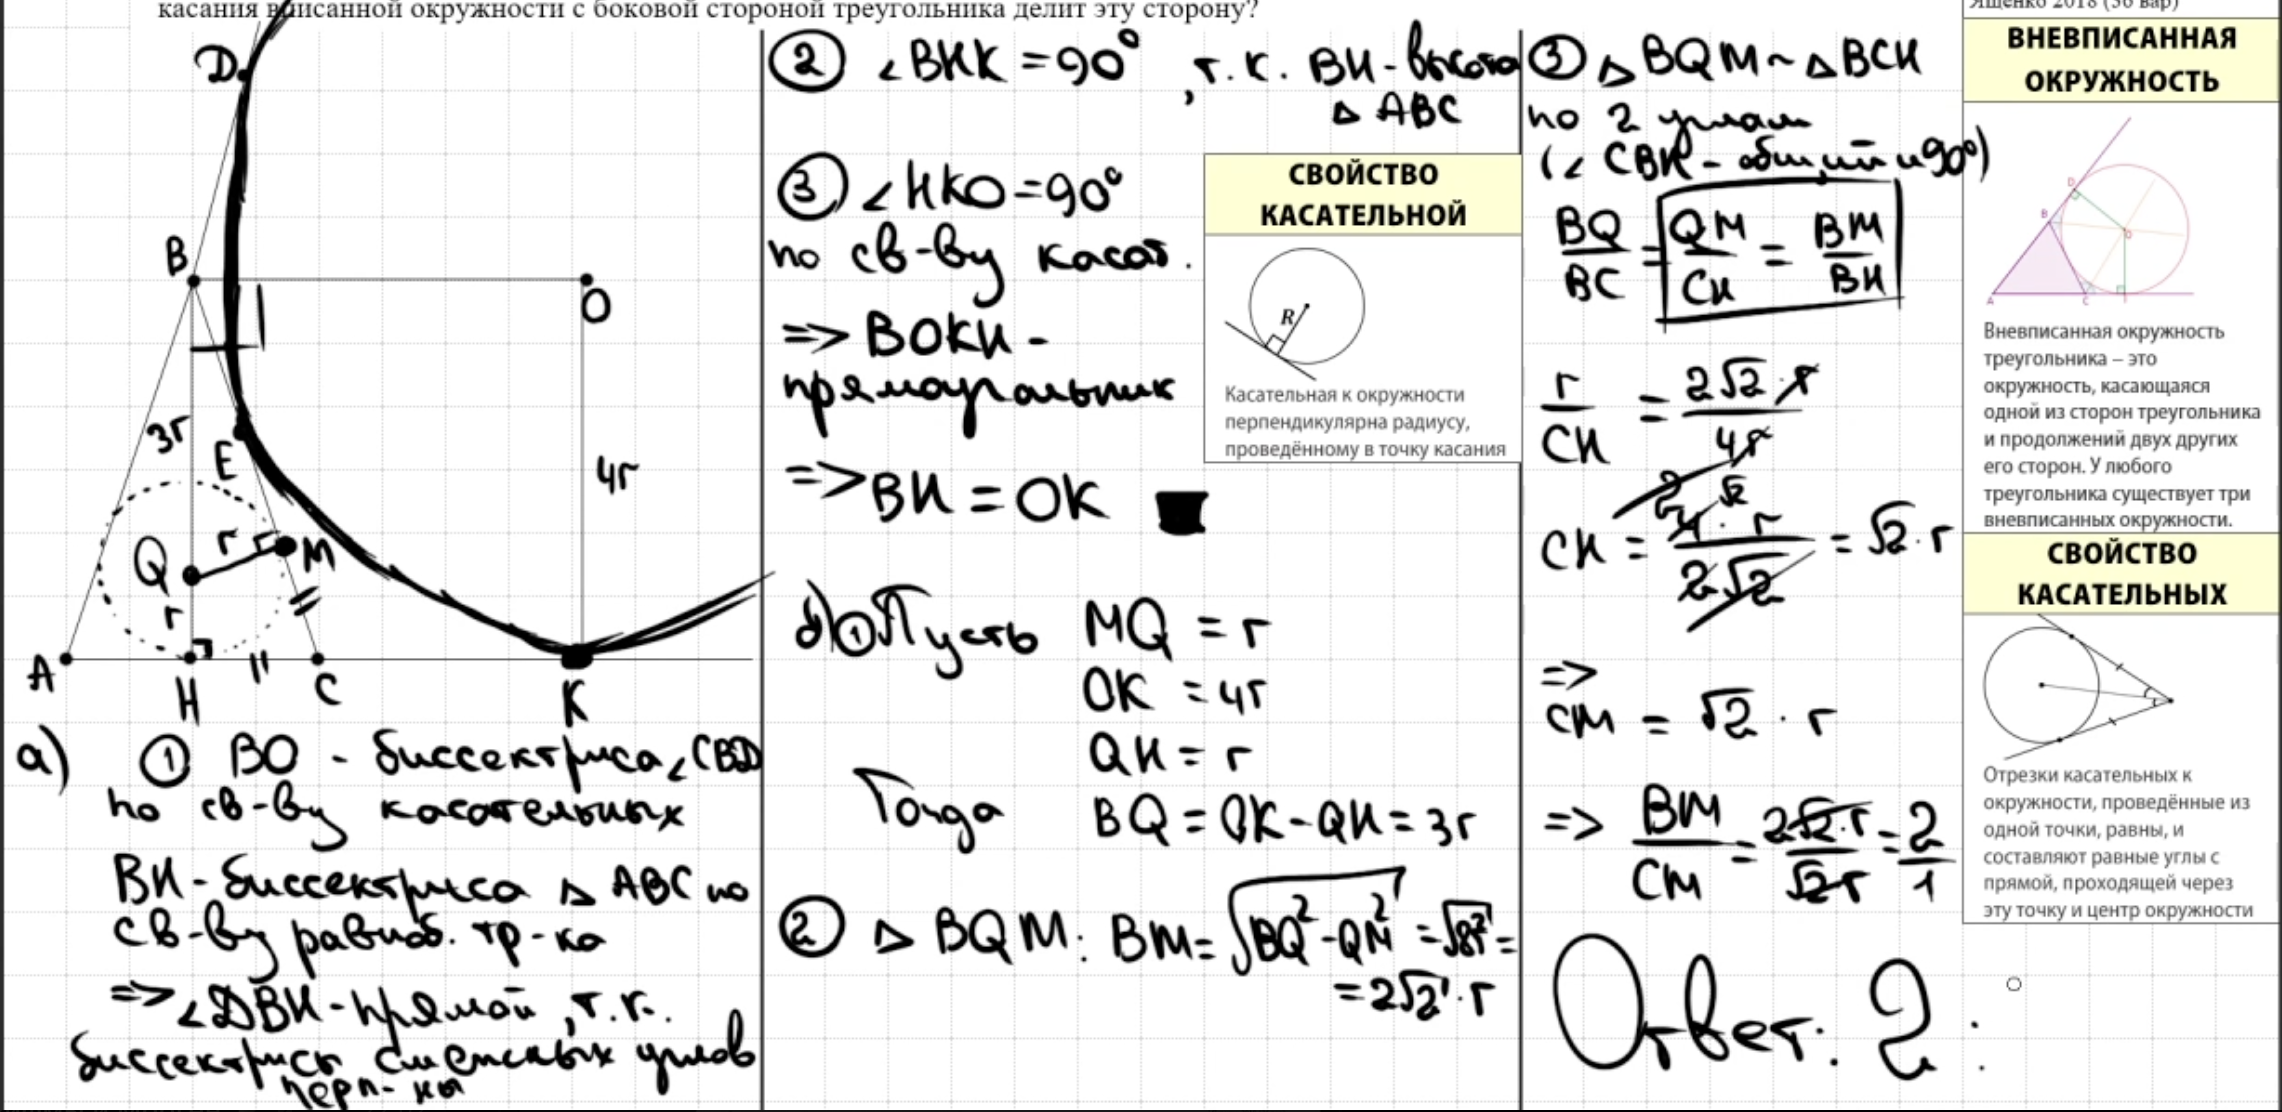 касания вписанной окружности с боковой стороной треугольника делит эту сторону?
D
B
O
3r
E
4r
Q
r
M
r
A
H
C
K
а) ① BO - биссектриса ∠CBD
по св-ву касательных
BH - биссектриса △ ABC по
св-ву равноб. тр-ка
=> ∠OBH - прямой, т.к.
биссектрисы смежных углов
перп-ны
② ∠BHK = 90° , т.к. BH - высота
△ ABC
③ ∠HKO = 90°
по св-ву касат.
=> BOKH -
прямоугольник
=> BH = OK
СВОЙСТВО
КАСАТЕЛЬНОЙ
R
Касательная к окружности
перпендикулярна радиусу,
проведённому в точку касания
б) ① Пусть MQ = r
OK = 4r
QH = r
Тогда BQ = OK - QH = 3r
② △ BQM: BM = √(BQ² - QM²) = √8r² =
= 2√2 · r
③ △ BQM ~ △ BCH
по 2 углам
(∠ CBH - общий и 90°)
BQ/BC = QM/CH = BM/BH
r/CH = 2√2 · r/4r
CH = 4 · r/2√2 = √2 · r
=>
CM = √2 · r
=> BM/CM = 2√2 · r/√2 r = 2/1
Ответ: 2 :
Ященко 2018 (36 вар)
ВНЕВПИСАННАЯ
ОКРУЖНОСТЬ
D
B
O
A
C
Вневписанная окружность
треугольника – это
окружность, касающаяся
одной из сторон треугольника
и продолжений двух других
его сторон. У любого
треугольника существует три
вневписанных окружности.
СВОЙСТВО
КАСАТЕЛЬНЫХ
Отрезки касательных к
окружности, проведённые из
одной точки, равны, и
составляют равные углы с
прямой, проходящей через
эту точку и центр окружности